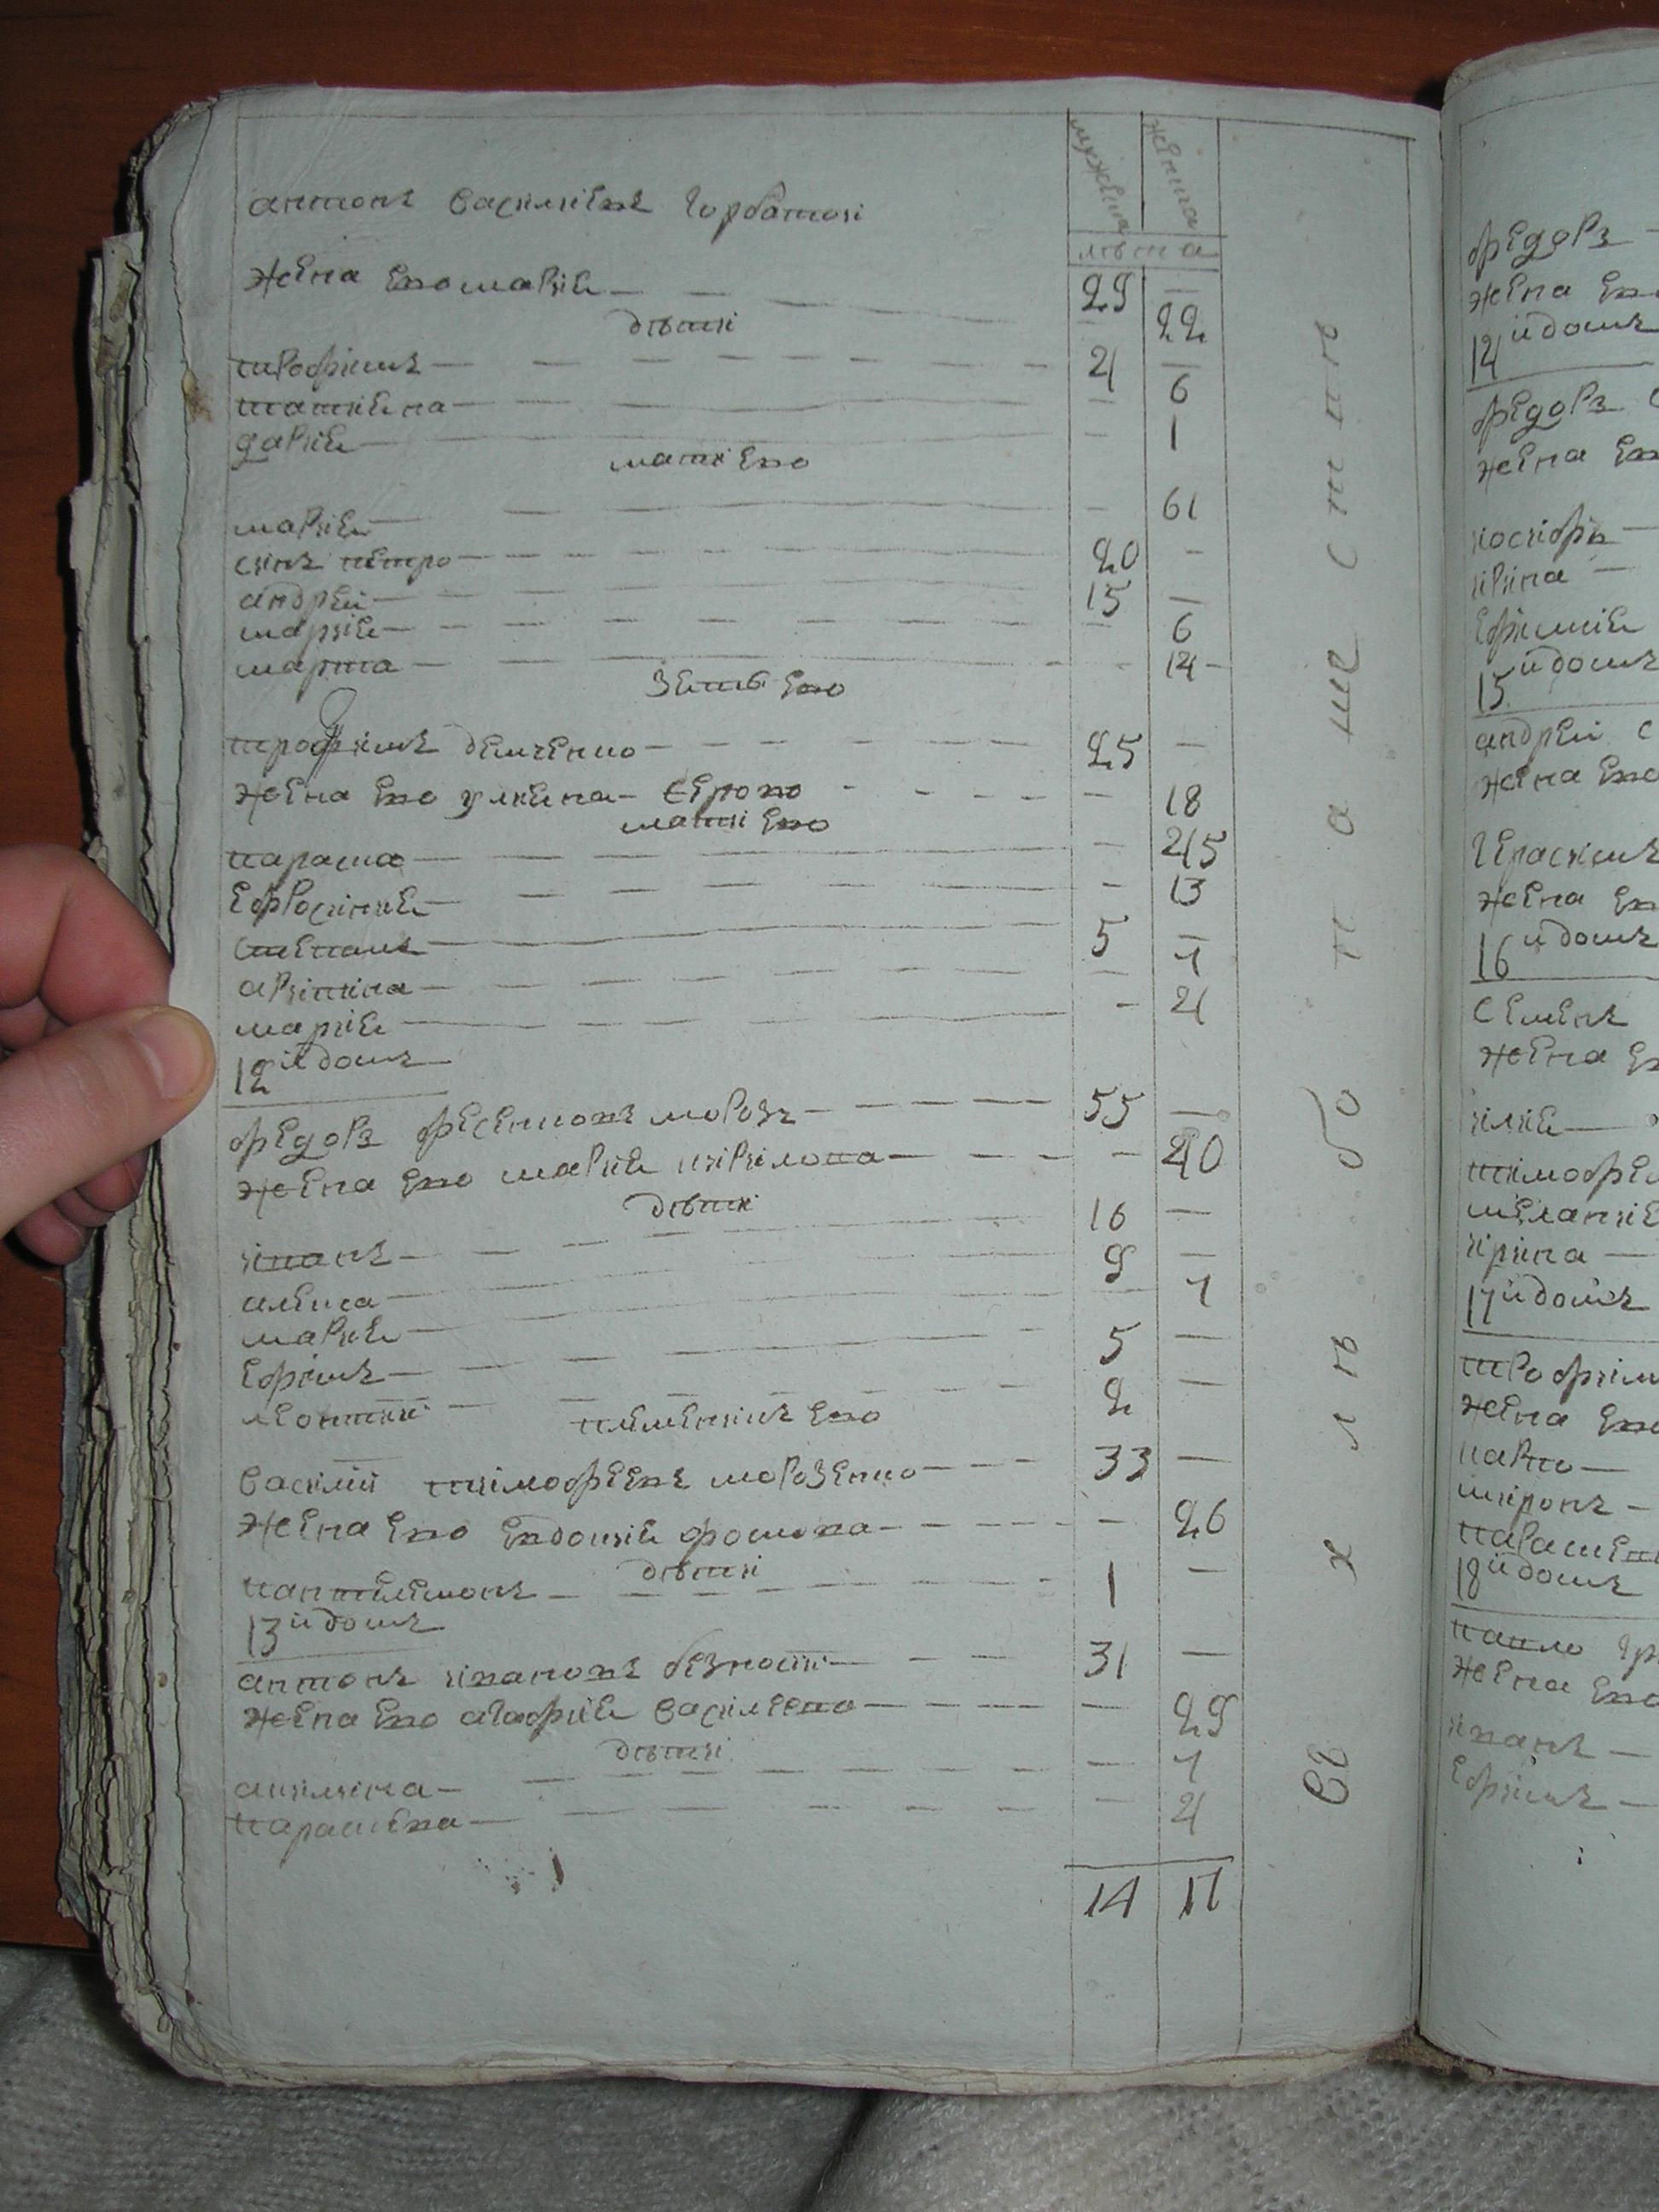 мужеска
женска
лѣта
антонъ василиевъ горбатои
жена его мария — 29 —
22
дѣти
трофимъ — 4 —
татиена — 6
дария — 1
мати его
мария — 61
синъ петро — 20 —
андреи — 15 —
мария — 6
марта — 14
зять его
трофимъ демченко — 25 —
жена его улиена — 18
мати его
параска — 45
ефросиния — 13
степанъ — 5 —
7
мария — 4
12й домъ
федоръ фесенковъ морозъ — 55 —
жена его мария кирилова — 40
дѣти
иванъ — 16 —
алекса — 9 —
мария — 7
ефимъ — 5 —
леонтии — 2 —
племенникъ его
василий тимофеевъ морозенко — 33 —
жена его евдокия фомова — 26
дѣти
пантелемонъ — 1 —
13й домъ
антонъ ивановъ — 31 —
жена его агафия василева — 29
дѣти
акилина — 7
парасковиа — 4
14 17
все хлѣбопашествѣ
федоръ —
жена его
14й домъ
федоръ
жена его
иосифъ —
ирина —
ефимия
15й домъ
андреи
жена его
герасимъ
жена его
16й домъ
семенъ
жена его
илия —
тимофеи
мелания
ирина —
17й домъ
трофимъ
жена его
миронъ —
18й домъ
павло
жена его
иванъ —
ефимъ —